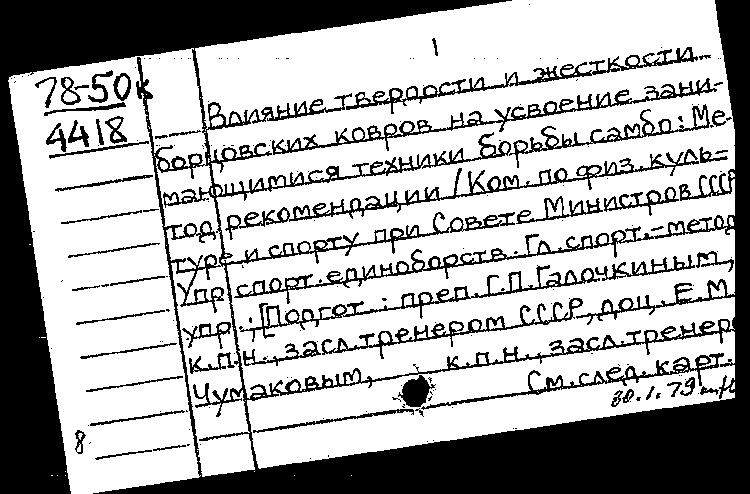 1
78-50к
4418
Влияние твердости и жесткости
борцовских ковров на усвоение зани-
мающимися техники борьбы самбо: Ме-
тод. рекомендации / Ком. по физ. куль=
туре и спорту при Совете Министров СССР
Упр. спорт. единоборств. Гл. спорт.-метод
упр.; [Подгот.: преп. Г.П. Галочкиным,
к.п.н., засл. тренером СССР, доц. Е.М
Чумаковым, к.п.н., засл. тренеро
См. след. карт.
30.1.79
8